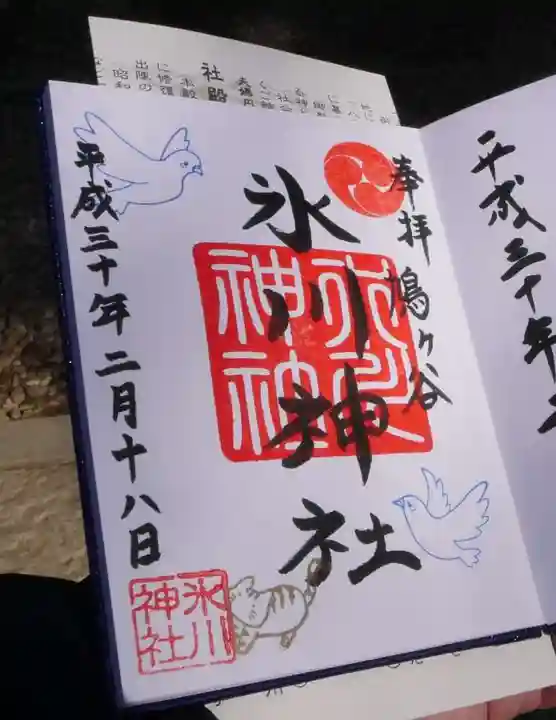 奉拝 鳩ヶ谷
氷川神社
平成三十年二月十八日
氷川
神社
氷川
神社
平成三十年二
社殿